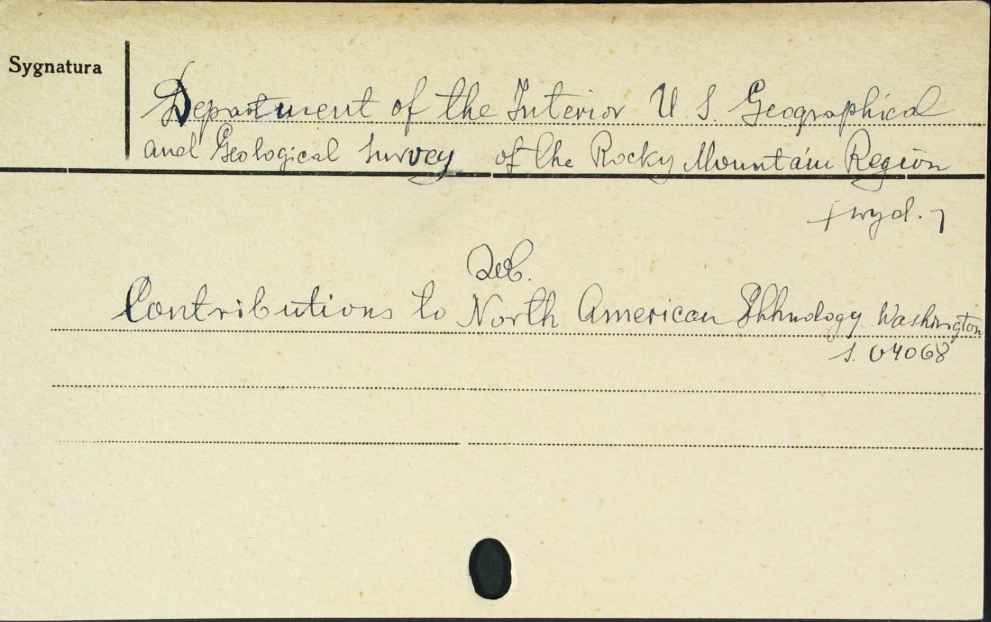 Sygnatura
Department of the Interior U. S. Geographical
and Geological Survey of the Rocky Mountain Region
[wyd.]
Zob.
Contributions to North American Ethnology Washington
S. 04068